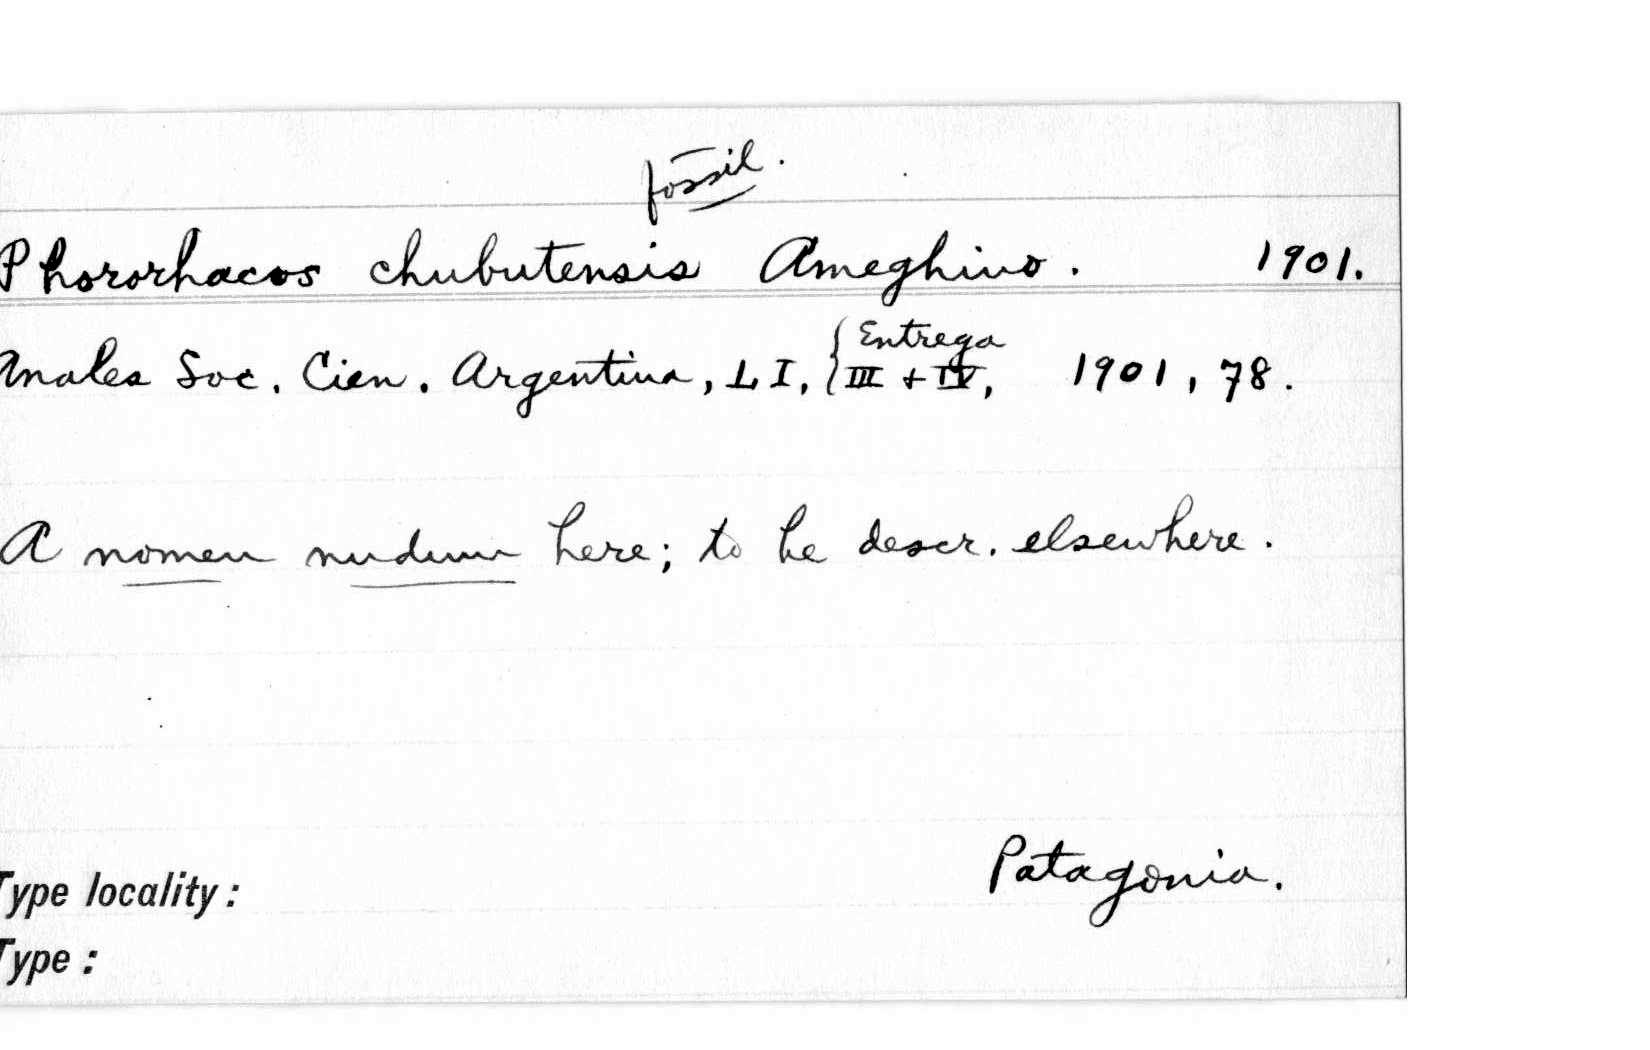 fossil.
Phororhacos chubutensis Ameghino. 1901.
Anales Soc. Cien. Argentina, LI, { Entrega III + IV, 1901, 78.
A nomen nudum here; to be descr. elsewhere.
Patagonia.
Type locality:
Type: